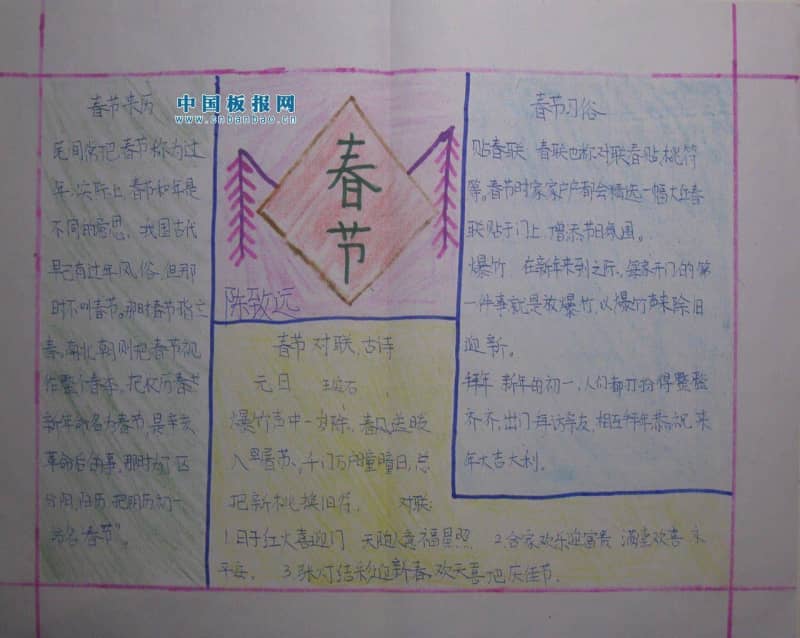 中国板报网
www.cnbanbao.cn
春节来历
民间俗把春节称为过
年,实际上春节和年是
不同的意思,我国古代
早已有过年风俗,但那
时不叫春节。那时春节指立
春。南北朝则把春节视
作整个春季。把农历春节
新年命名为春节,是辛亥
革命后的事,那时为了区
分阳,阴历,把阴历初一
为名“春节”。
春节
陈致远
春节对联,古诗
元日 王安石
爆竹声中一岁除,春风送暖
入屠苏。千门万户曈曈日,总
把新桃换旧符。 对联:
1.日子红火喜迎门 天随人意福星照 2.合家欢乐迎富贵 满堂欢喜
平安. 3.张灯结彩迎新春,欢天喜地庆佳节.
春节习俗
贴春联 春联也称对联春贴,桃符
等。春节时家家户户都会精选一幅大红春
联贴于门上,增添节日氛围。
爆竹 在新年来到之际,每家开门的第
一件事就是放爆竹,以爆竹声来除旧
迎新。
拜年 新年的初一,人们都打扮得整整
齐齐,出门拜访亲友,相互拜年恭祝来
年大吉大利。